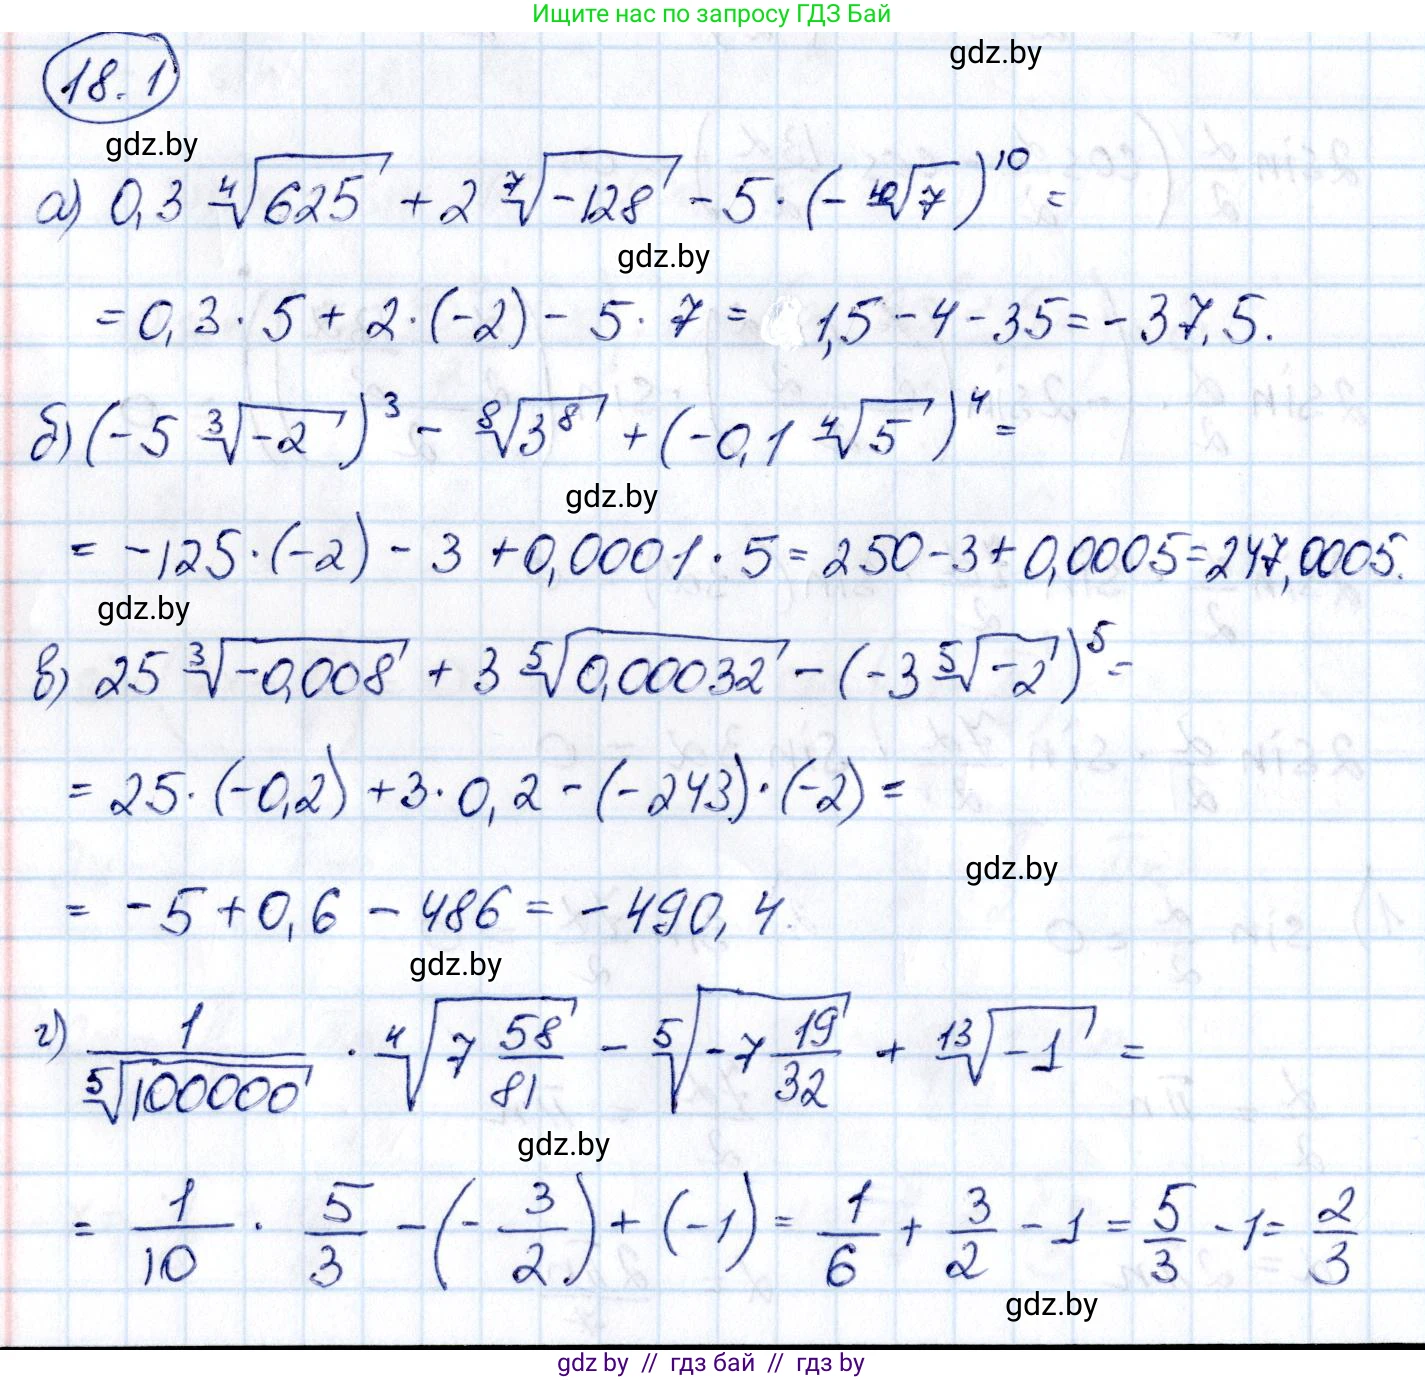 Ищите нас по запросу ГДЗ Бай
gdz.by
18.1
gdz.by
а) 0,3 ⁴√625 + 2 ⁷√-128 - 5·(- ¹⁰√7)¹⁰ =
gdz.by
= 0,3·5 + 2·(-2) - 5·7 = 1,5 - 4 - 35 = - 37,5.
б) (-5 ³√-2)³ - ⁸√3⁸ + (-0,1 ⁴√5)⁴ =
gdz.by
= -125·(-2) - 3 + 0,0001·5 = 250 - 3 + 0,0005 = 247,0005.
gdz.by
в) 25 ³√-0,008 + 3 ⁵√0,00032 - (-3 ⁵√-2)⁵ =
= 25·(-0,2) + 3·0,2 - (-243)·(-2) =
gdz.by
= -5 + 0,6 - 486 = - 490,4.
gdz.by
г) 1/⁵√100000 · ⁴√(7 58/81) - ⁵√(-7 19/32) + ¹³√-1 =
gdz.by
= 1/10 · 5/3 - (- 3/2) + (-1) = 1/6 + 3/2 - 1 = 5/3 - 1 = 2/3
gdz.by
gdz by // гдз бай // gdz by